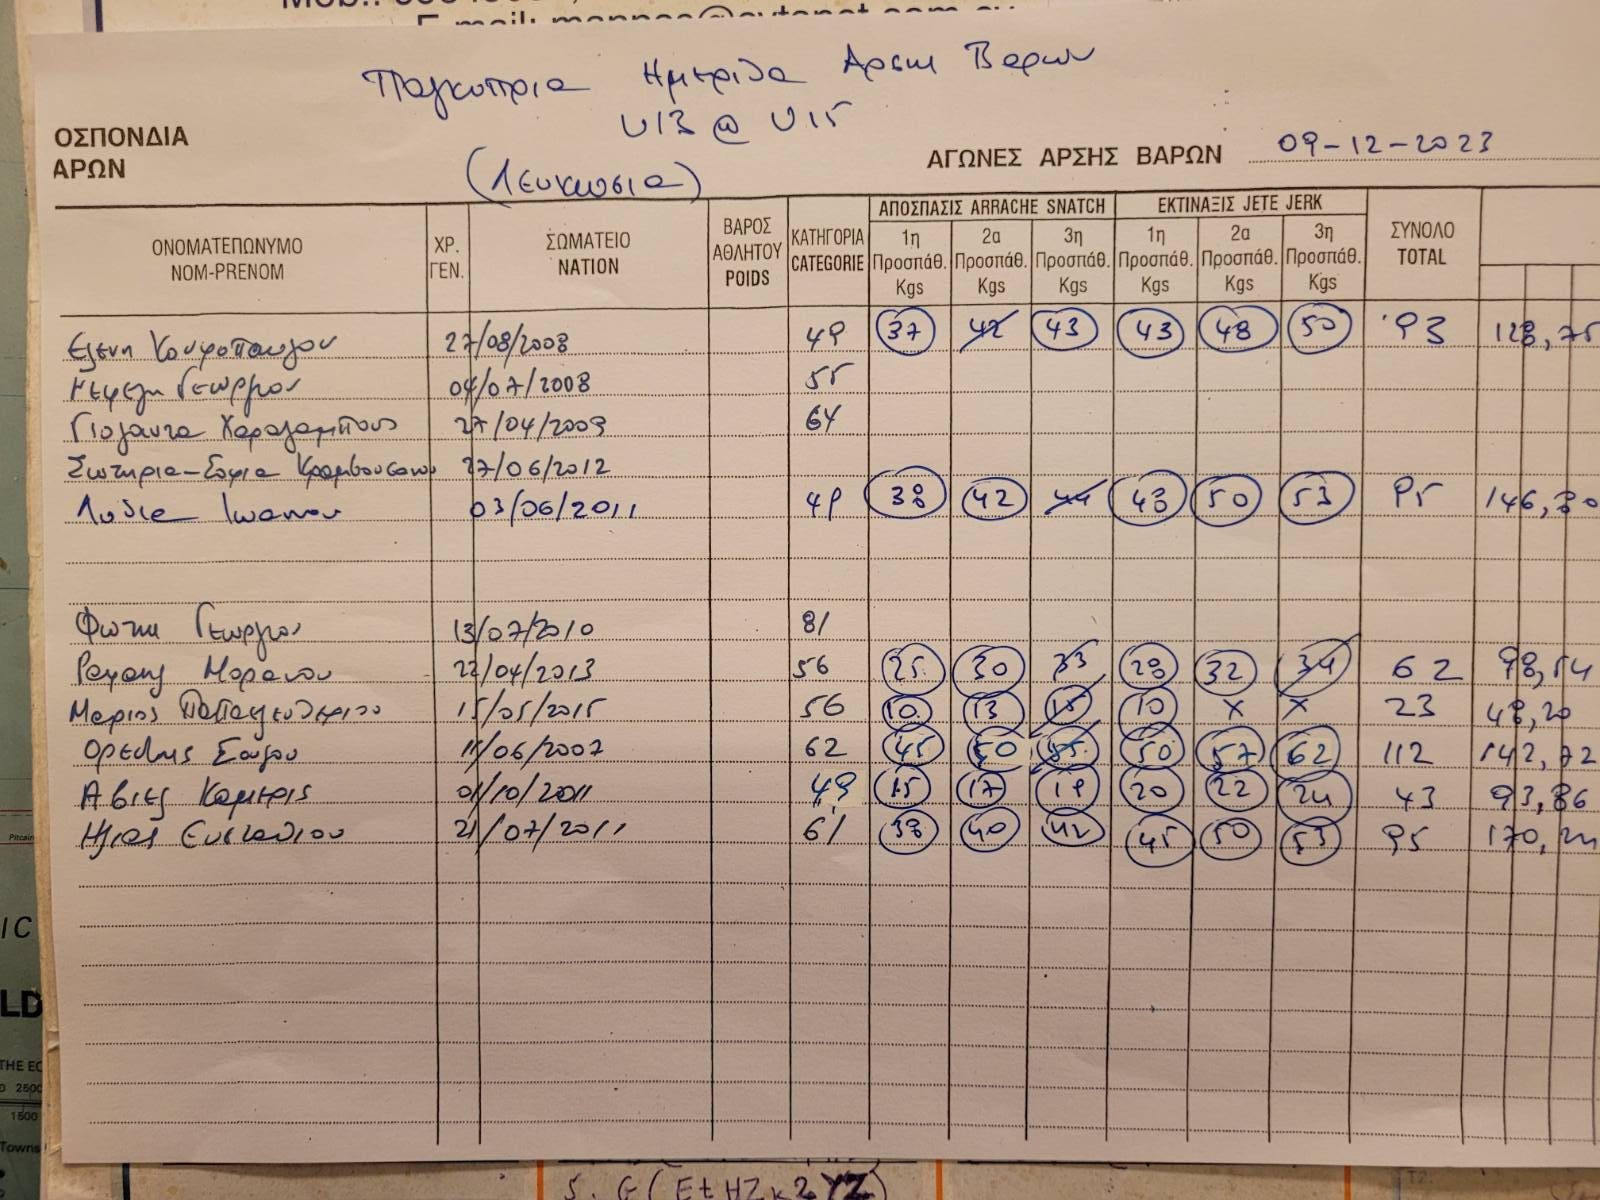 E-mail:
Παγκυπρια Ημεριδα Αρση Βαρων
U13 @ U15
(Λευκωσια)
ΟΣΠΟΝΔΙΑ
ΑΡΩΝ
ΑΓΩΝΕΣ ΑΡΣΗΣ ΒΑΡΩΝ 09-12-2023
ΟΝΟΜΑΤΕΠΩΝΥΜΟ
NOM-PRENOM
ΧΡ.
ΓΕΝ.
ΣΩΜΑΤΕΙΟ
NATION
ΒΑΡΟΣ
ΑΘΛΗΤΟΥ
POIDS
ΚΑΤΗΓΟΡΙΑ
CATEGORIE
ΑΠΟΣΠΑΣΙΣ ARRACHE SNATCH
1η Προσπάθ. Kgs
2α Προσπάθ. Kgs
3η Προσπάθ. Kgs
ΕΚΤΙΝΑΞΙΣ JETE JERK
1η Προσπάθ. Kgs
2α Προσπάθ. Kgs
3η Προσπάθ. Kgs
ΣΥΝΟΛΟ
TOTAL
Ελενη Κουφοπαυλου 27/08/2008 49 37 42 43 43 48 50 93 128,75
Νεφελη Γεωργιου 04/07/2008 55
Γιολαντα Χαραλαμπους 27/04/2009 64
Σωτηρια-Σοφια 27/06/2012
Λυδια Ιωαννου 03/06/2011 49 38 42 44 48 50 53 95 146,30
Φωτης Γεωργιου 13/07/2010 81
Ραφαης 22/04/2013 56 25 30 33 28 32 34 62 98,54
Μαριος Παπαελευθεριου 15/05/2015 56 10 13 15 10 x x 23 48,20
Ορεστης Σαββου 11/06/2007 62 45 50 55 50 57 62 112 142,72
Καμερις 01/10/2011 49 15 17 19 20 22 24 43 93,86
Ηλιας Ευσταθιου 21/07/2011 61 38 40 42 45 50 53 95 170,
IC
LD
THE EC
2500
1500
Towns